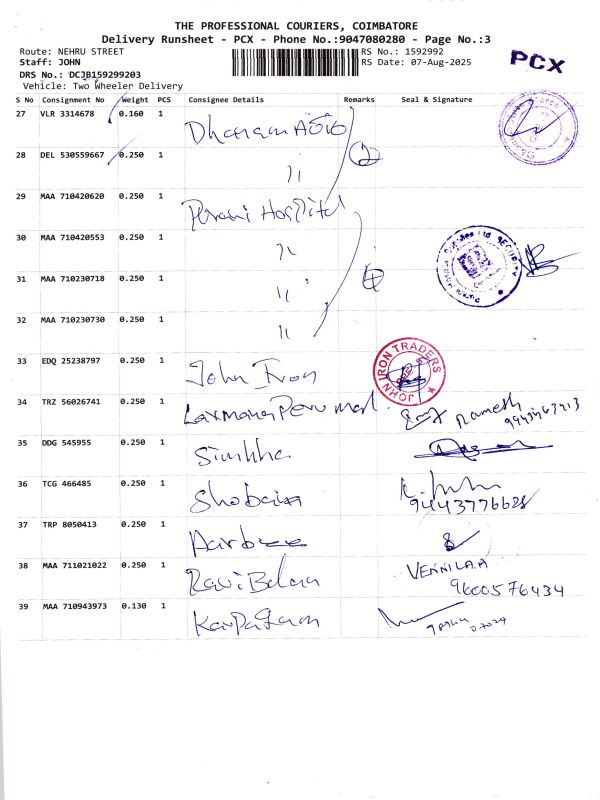 THE PROFESSIONAL COURIERS, COIMBATORE
Delivery Runsheet - PCX - Phone No.:9047080280 - Page No.:3
Route: NEHRU STREET RS No.: 1592992
Staff: JOHN RS Date: 07-Aug-2025
DRS No.: DCJB159299203
Vehicle: Two Wheeler Delivery
PCX
S No Consignment No Weight PCS Consignee Details Remarks Seal & Signature
27 VLR 3314678 0.160 1 Dharan
28 DEL 530559667 0.250 1 〃 2
29 MAA 710420620 0.250 1 Hospital
30 MAA 710420553 0.250 1 〃
31 MAA 710230718 0.250 1 〃 4
32 MAA 710230730 0.250 1 〃
33 EDQ 25238797 0.250 1 John Iron JOHN IRON TRADERS
34 TRZ 56026741 0.250 1 Laxmana Perumal Ramesh
35 DDG 545955 0.250 1
36 TCG 466485 0.250 1 9443776628
37 TRP 8050413 0.250 1
38 MAA 711021022 0.250 1 Ravi VENNILA.A
9600576434
39 MAA 710943973 0.130 1 Karpagam